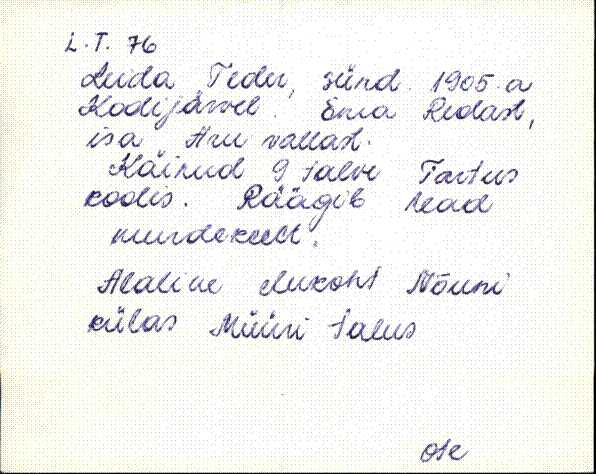 L.T. 76
Leida Teder, sünd. 1905. a
Kodijärvel. Ema Redast,
isa Aru vallast.
Käinud 9 talve Tartus
koolis. Räägib head
murdekeelt.
Alaline elukoht Nõuni
külas Müüri talus
Ote